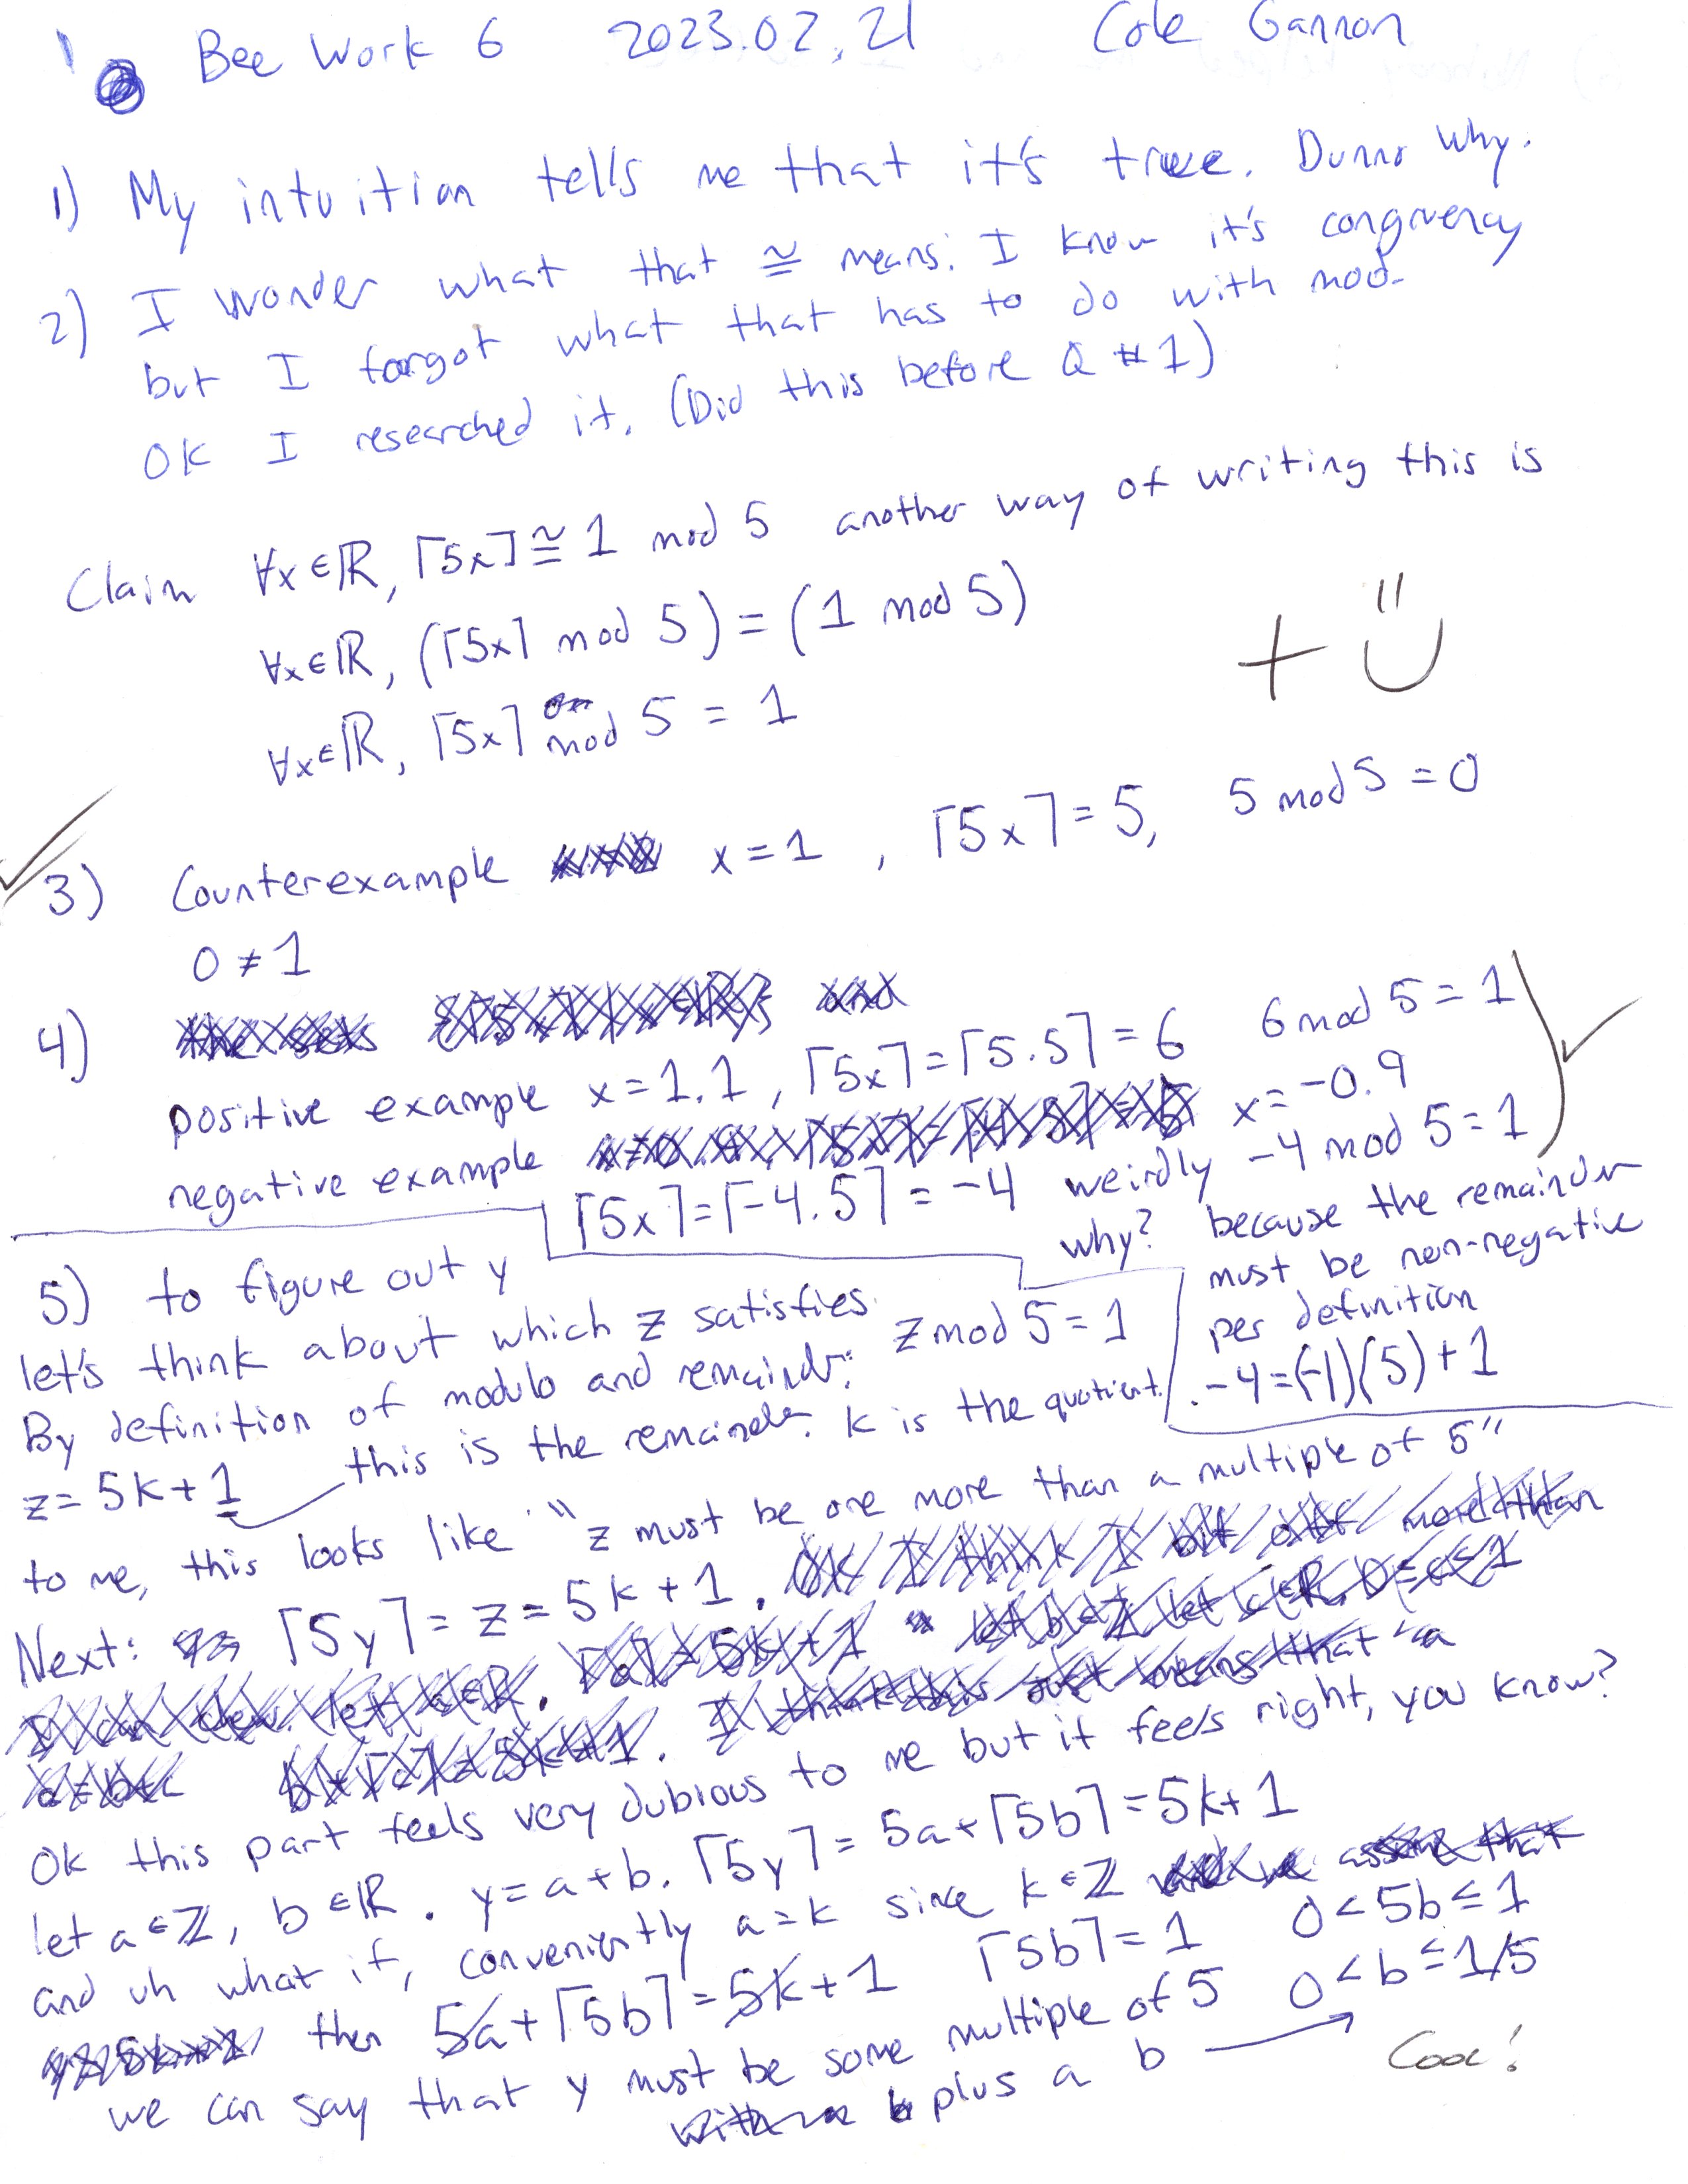 Bee Work 6 2023.02.21 Cole Gannon
1) My intuition tells me that it's true. Dunno why.
2) I wonder what that ≅ means. I know it's congruency
but I forgot what that has to do with mod.
OK I researched it. (Did this before Q #1)
Claim ∀x∈ℝ, ⌈5x⌉ ≅ 1 mod 5 another way of writing this is
∀x∈ℝ, (⌈5x⌉ mod 5) = (1 mod 5)
∀x∈ℝ, ⌈5x⌉ mod 5 = 1
+ Ü
3) Counterexample x=1, ⌈5x⌉=5, 5 mod 5 = 0
0≠1
4)
positive example x=1.1, ⌈5x⌉=⌈5.5⌉=6 6 mod 5=1
negative example x=-0.9
⌈5x⌉=⌈-4.5⌉=-4 weirdly -4 mod 5=1
why? because the remainder
must be non-negative
per definition
-4=(-1)(5)+1
5) to figure out y
let's think about which z satisfies: z mod 5=1
By definition of modulo and remainder:
z=5k+1 this is the remainder. k is the quotient.
to me, this looks like "z must be one more than a multiple of 5"
Next: ⌈5y⌉=z=5k+1.
Ok this part feels very dubious to me but it feels right, you know?
let a∈ℤ, b∈ℝ. y=a+b. ⌈5y⌉=5a+⌈5b⌉=5k+1
and uh what if, conveniently a=k since k∈ℤ
then 5a+⌈5b⌉=5k+1 ⌈5b⌉=1 0<5b≤1
we can say that y must be some multiple of 5 0<b≤1/5
plus a b
Cool!